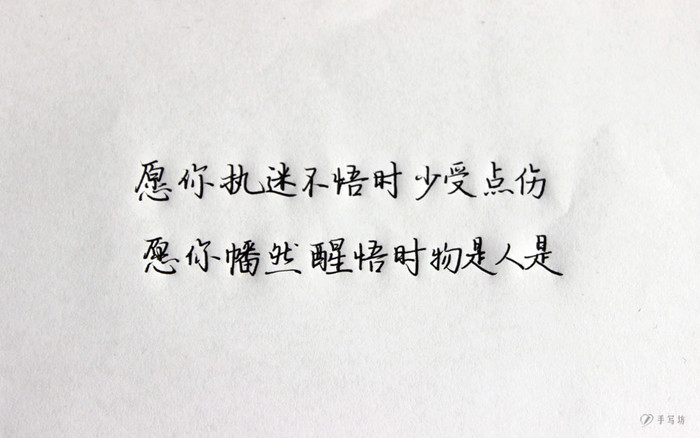 愿你执迷不悟时少受点伤
愿你幡然醒悟时物是人是
手写坊